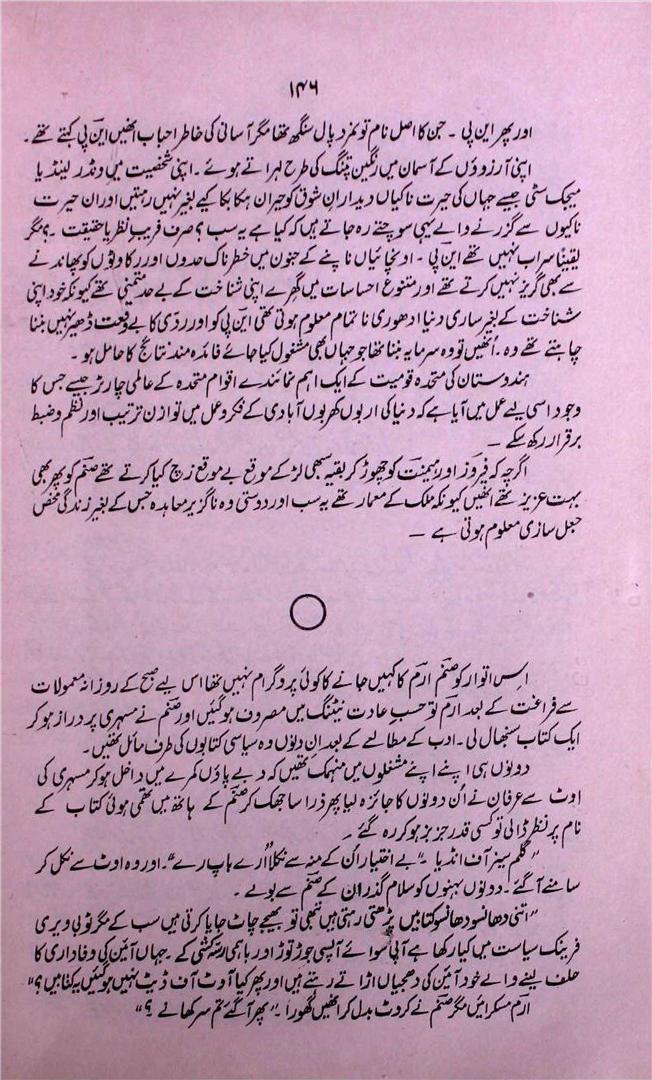 ۱۴۶
اور پھر این پی ۔ جن کا اصل نام تو نمرد پال سنگھ تھا مگر آسانی کی خاطر احباب انھیں این پی کہتے تھے ۔
اپنی آرزوؤں کے آسمان میں رنگین پتنگ کی طرح لہراتے ہوئے ۔ اپنی شخصیت میں ونڈر لینڈ یا
میجک سٹی جیسے جہاں کی حیرت ناکیاں دیدارانِ شوق کو حیران ہکا بکا کیے بغیر نہیں رہتیں اور ان حیرت
ناکیوں سے گزرنے والے یہی سوچتے رہ جاتے ہیں کہ کیا ہے یہ سب ؟ صرف فریبِ نظر یا حقیقت ۔ ؟ مگر
یقیناً سراب نہیں تھے این پی ۔ اونچائیاں ناپنے کے جنون میں خطرناک حدوں اور رکاوٹوں کو پھاندنے
سے بھی گریز نہیں کرتے تھے اور متنوع احساسات میں گھرے اپنی شناخت کے بے حد متمنی تھے کیونکہ خود اپنی
شناخت کے بغیر ساری دنیا ادھوری نا تمام معلوم ہوتی تھی این پی کو اور ردّی کا بے وقعت ڈھیر نہیں بننا
چاہتے تھے وہ ۔ انھیں تو وہ سرمایہ بننا تھا جو جہاں بھی مشغول کیا جائے فائدہ مند نتائج کا حامل ہو ۔
ہندوستان کی متحدہ قومیت کے ایک اہم نمائندے اقوام متحدہ کے عالمی چارٹر جیسے جس کا
وجود اسی لیے عمل میں آیا ہے کہ دنیا کی اربوں کھربوں آبادی کے فکر و عمل میں توازن ترتیب اور نظم و ضبط
برقرار رکھ سکے ۔
اگرچہ کہ فیروز اور ہیمنت کو چھوڑ کر بقیہ سبھی لڑکے موقع بے موقع زچ کیا کرتے تھے صنم کو پھر بھی
بہت عزیز تھے انھیں کیونکہ ملک کے معمار تھے یہ سب اور دوستی وہ ناگزیر معاہدہ جس کے بغیر زندگی محض
جعل سازی معلوم ہوتی ہے ۔
اس اتوار کو صنم ارم کا کہیں جانے کا کوئی پروگرام نہیں تھا اس لیے صبح کے روزانہ معمولات
سے فراغت کے بعد ارم تو حسبِ عادت نیٹنگ میں مصروف ہو گئیں اور صنم نے مسہری پر دراز ہو کر
ایک کتاب سنبھال لی ۔ ادب کے مطالعے کے بعد ان دنوں وہ سیاسی کتابوں کی طرف مائل تھیں ۔
دونوں ہی اپنے اپنے مشغلوں میں منہمک تھیں کہ دبے پاؤں کمرے میں داخل ہو کر مسہری کی
اوٹ سے عرفان نے اُن دونوں کا جائزہ لیا پھر ذرا سا جھک کر صنم کے ہاتھ میں تھمی ہوئی کتاب کے
نام پر نظر ڈالی تو کسی قدر جز بز ہو کر رہ گئے ۔
"گلمپسیز آف انڈیا ۔" بے اختیار اُن کے منہ سے نکلا "ارے باپ رے"۔ اور وہ اوٹ سے نکل کر
سامنے آ گئے ۔ دونوں بہنوں کو سلام گذران کے صنم سے بولے ۔
"اتنی دھانسو دھانسو کتابیں پڑھتی رہتی ہیں تبھی تو بھیجے چاٹ جایا کرتی ہیں سب کے مگر ٹو بی ویری
فرینک سیاست میں کیا رکھا ہے آپی سوائے آپسی جوڑ توڑ اور باہمی رسّہ کشی کے ۔ جہاں آئین کی وفاداری کا
حلف لینے والے خود آئین کی دھجیاں اڑاتے رہتے ہیں اور پھر کیا آوٹ آف ڈیٹ نہیں ہو گئیں یہ کتابیں ؟"
ارم مسکرائیں مگر صنم نے کروٹ بدل کر انھیں گھورا ۔ "پھر آ گئے تم سر کھانے ؟"